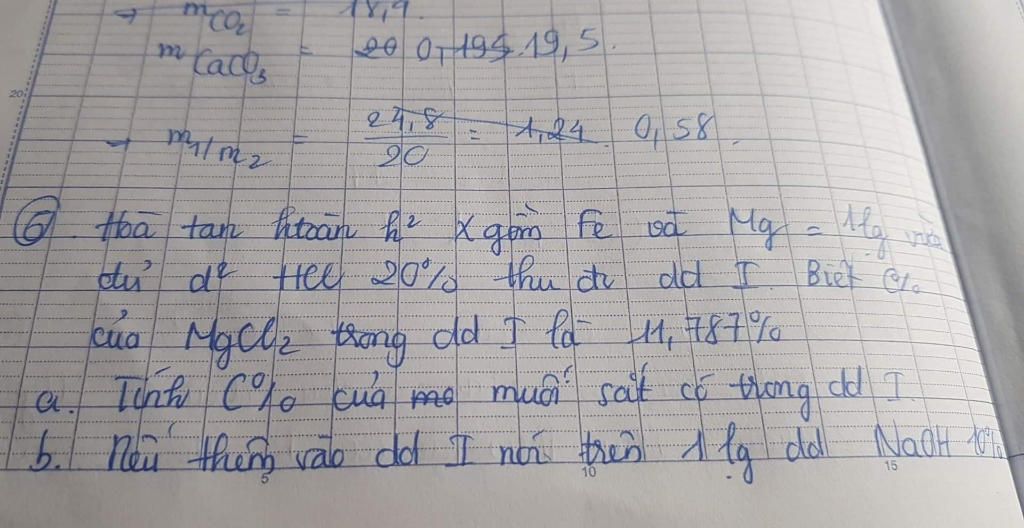 → mCO₂ = 18,9.
mCaCO₃ = 20 0,195 19,5.
→ m₁/m₂ = 24,8/20 = 1,24 0,58.
⑥. Hoà tan htoàn h² X gồm Fe và Mg = 1 lg vừa
đủ d² HCl 20% thu đc dd I. Biết C%
của MgCl₂ trong dd I là 11,787%
a. Tính C% của mo muối sắt có trong dd I.
b. Nếu thêm vào dd I nói trên 1 lg dd NaOH 10%
20
5 10 15